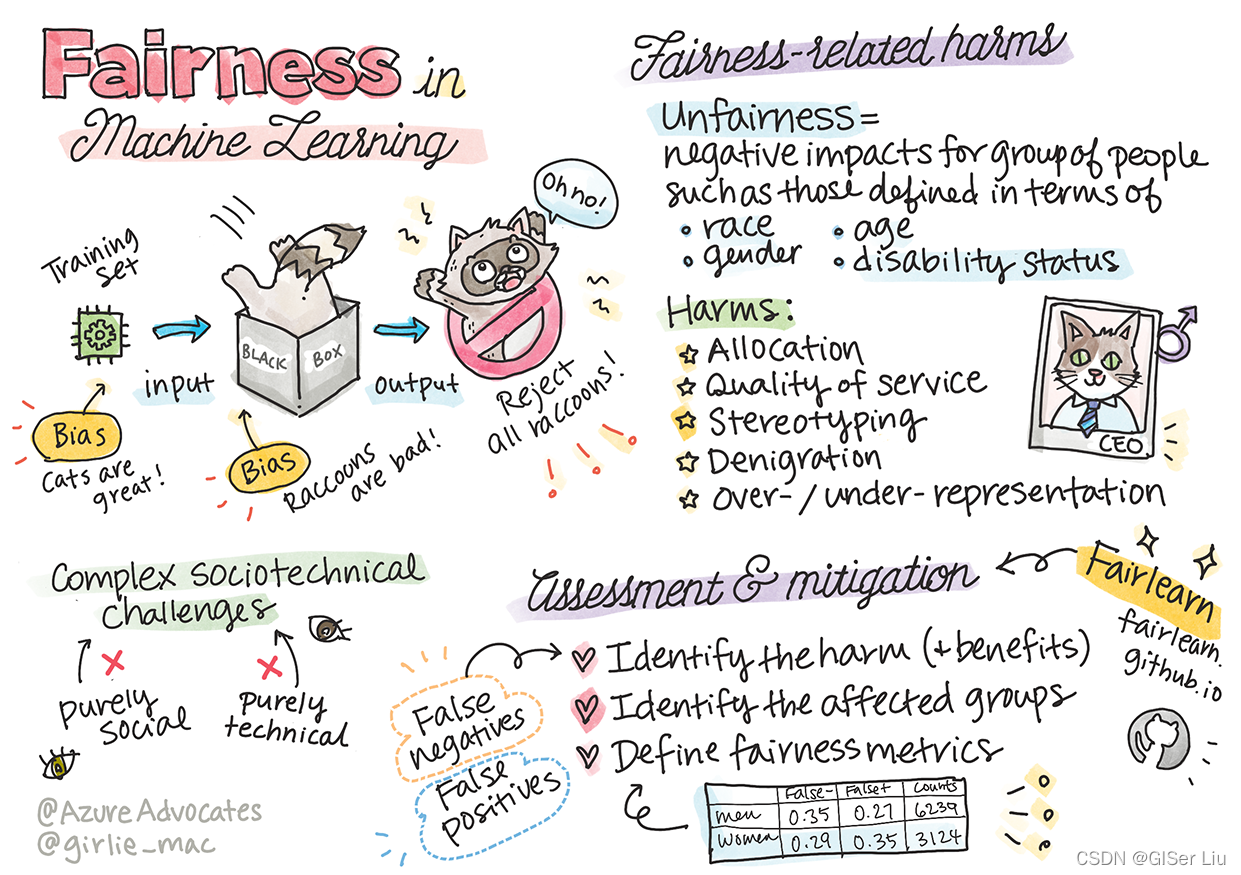 Fairness in
Machine Learning
Training
set
input
BLACK BOX
output
Oh no!
Reject
all raccoons!
Bias
cats are
great!
Bias
Raccoons
are bad!
Fairness-related harms
Unfairness =
negative impacts for group of people
such as those defined in terms of
• race
• gender
• age
• disability status
Harms:
Allocation
Quality of service
Stereotyping
Denigration
over- / under- representation
CEO
Complex sociotechnical
challenges
purely
social
purely
technical
@AzureAdvocates
@girlie_mac
Assessment & mitigation
Fairlearn
fairlearn.
github.io
Identify the harm (+ benefits)
Identify the affected groups
Define fairness metrics
False
negatives
False
positives
False- False+ Counts
men 0.35 0.27 6239
Women 0.29 0.35 3124
CSDN @GISer Liu